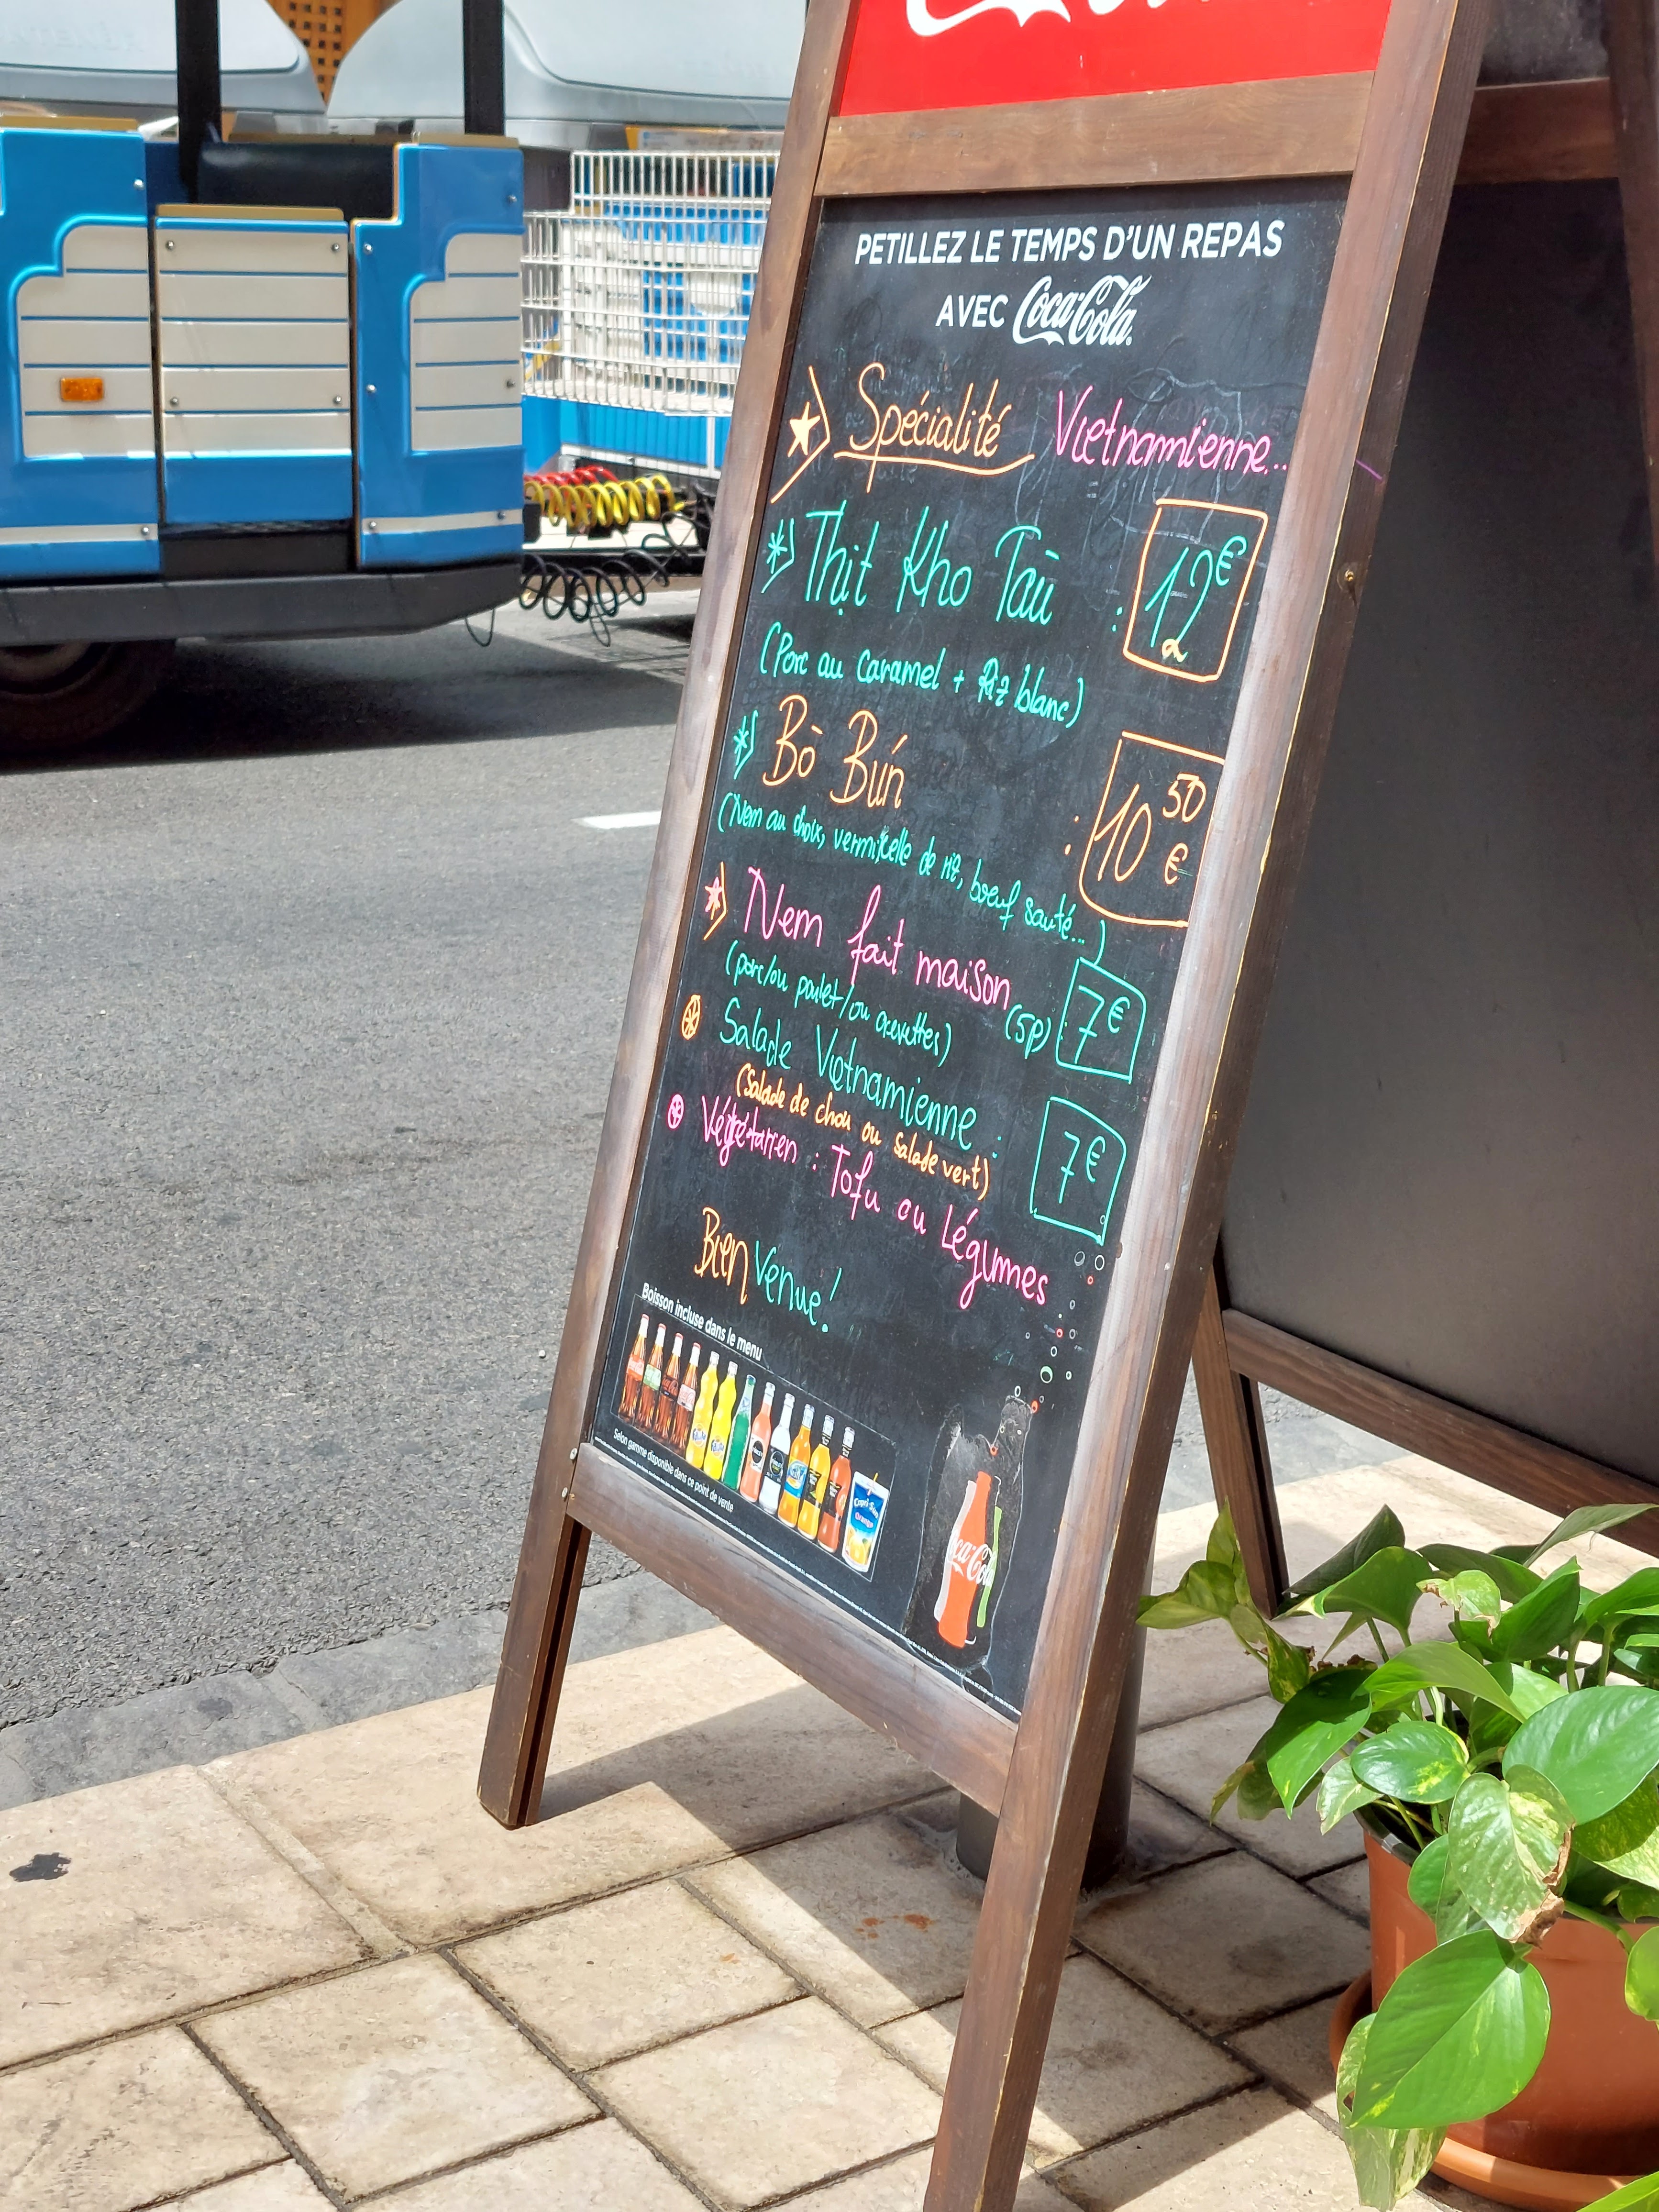 PETILLEZ LE TEMPS D'UN REPAS
AVEC Coca-Cola
Spécialité Vietnamienne...
Thịt Kho Tàu : 12€
(Porc au caramel + Riz blanc)
Bò Bún : 10€50
(Nem au choix, vermicelle de riz, bœuf sauté...)
Nem fait maison (5p) 7€
(porc/ou poulet/ou crevettes)
Salade Vietnamienne : 7€
(Salade de chou ou Salade vert)
Végétarien : Tofu ou Légumes
Bienvenue!
Boisson incluse dans le menu
Capri-Sun
Orange
Selon gamme disponible dans ce point de vente